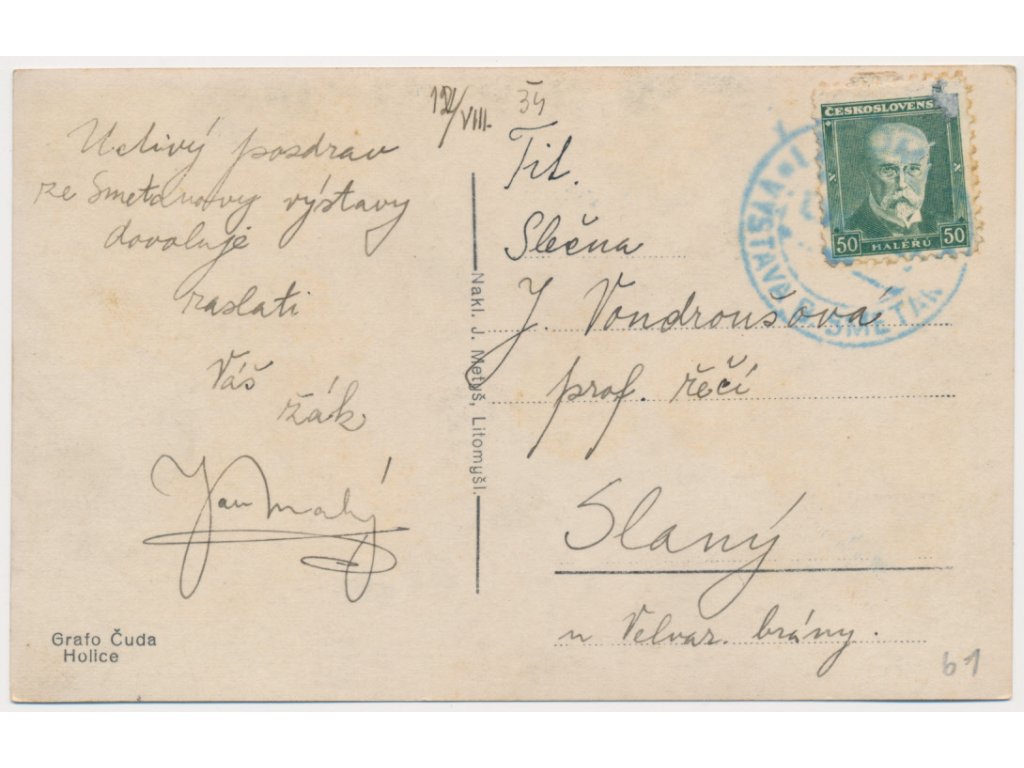 Uctivý pozdrav
ze Smetanovy výstavy
dovoluje
zaslati
Váš
žák
Jan Malý
Grafo Čuda
Holice
12/VIII. 34
Nakl. J. Metyš, Litomyšl.
Tit.
Slečna
J. Vondroušová
prof. řečí
Slaný
u Velvar. brány.
61
ČESKOSLOVENS
50 HALÉŘŮ 50
VÝSTAVA B. SMETAN